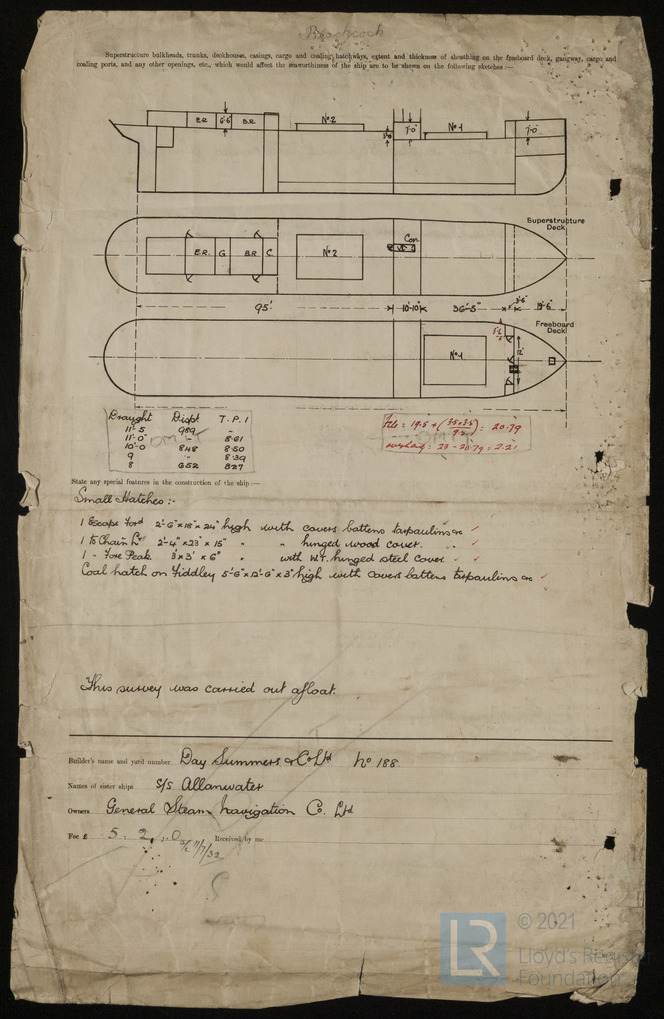 Superstructure bulkheads, trunks, deckhouses, casings, cargo and coaling hatchways, extent and thickness of sheathing on the freeboard deck, gangway, cargo and
coaling ports, and any other openings, etc., which would affect the seaworthiness of the ship are to be shown on the following sketches:—
E.R. 6'-6" B.R. Nº2 7'-0" Nº1 7'-0"
Superstructure
Deck
E.R. G B.R C. Nº2 Con
95' 10'-10" 36'-5" 19'-6"
Freeboard
Deck
Nº1
Draught Displt T.P.I
11'-5 989 -
11'-0" - 8·61
10'-0 848 8·50
9 - 8·39
8 652 8·27
State any special features in the construction of the ship:—
Small Hatches:-
1 Escape Ford 2'-6" x 18" x 24" high with covers battens tarpaulins &c ✓
1 To Chain Lr 2'-4" x 23" x 15" " " hinged wood cover. ✓
1 - Fore Peak 3' x 3' x 6" " with W.T. hinged steel cover ✓
Coal hatch on Fiddley 5'-6" x 12'-6" x 3" high with covers battens tarpaulins &c ✓
This survey was carried out afloat.
Builder's name and yard number Day Summers & Co Ltd Nº 188.
Names of sister ships S/S Allanwater
Owners General Steam Navigation Co. Ltd
Fee £ 5. 2. 0 11/7/32 Received by me
LR © 2021
Lloyd's Register
Foundation